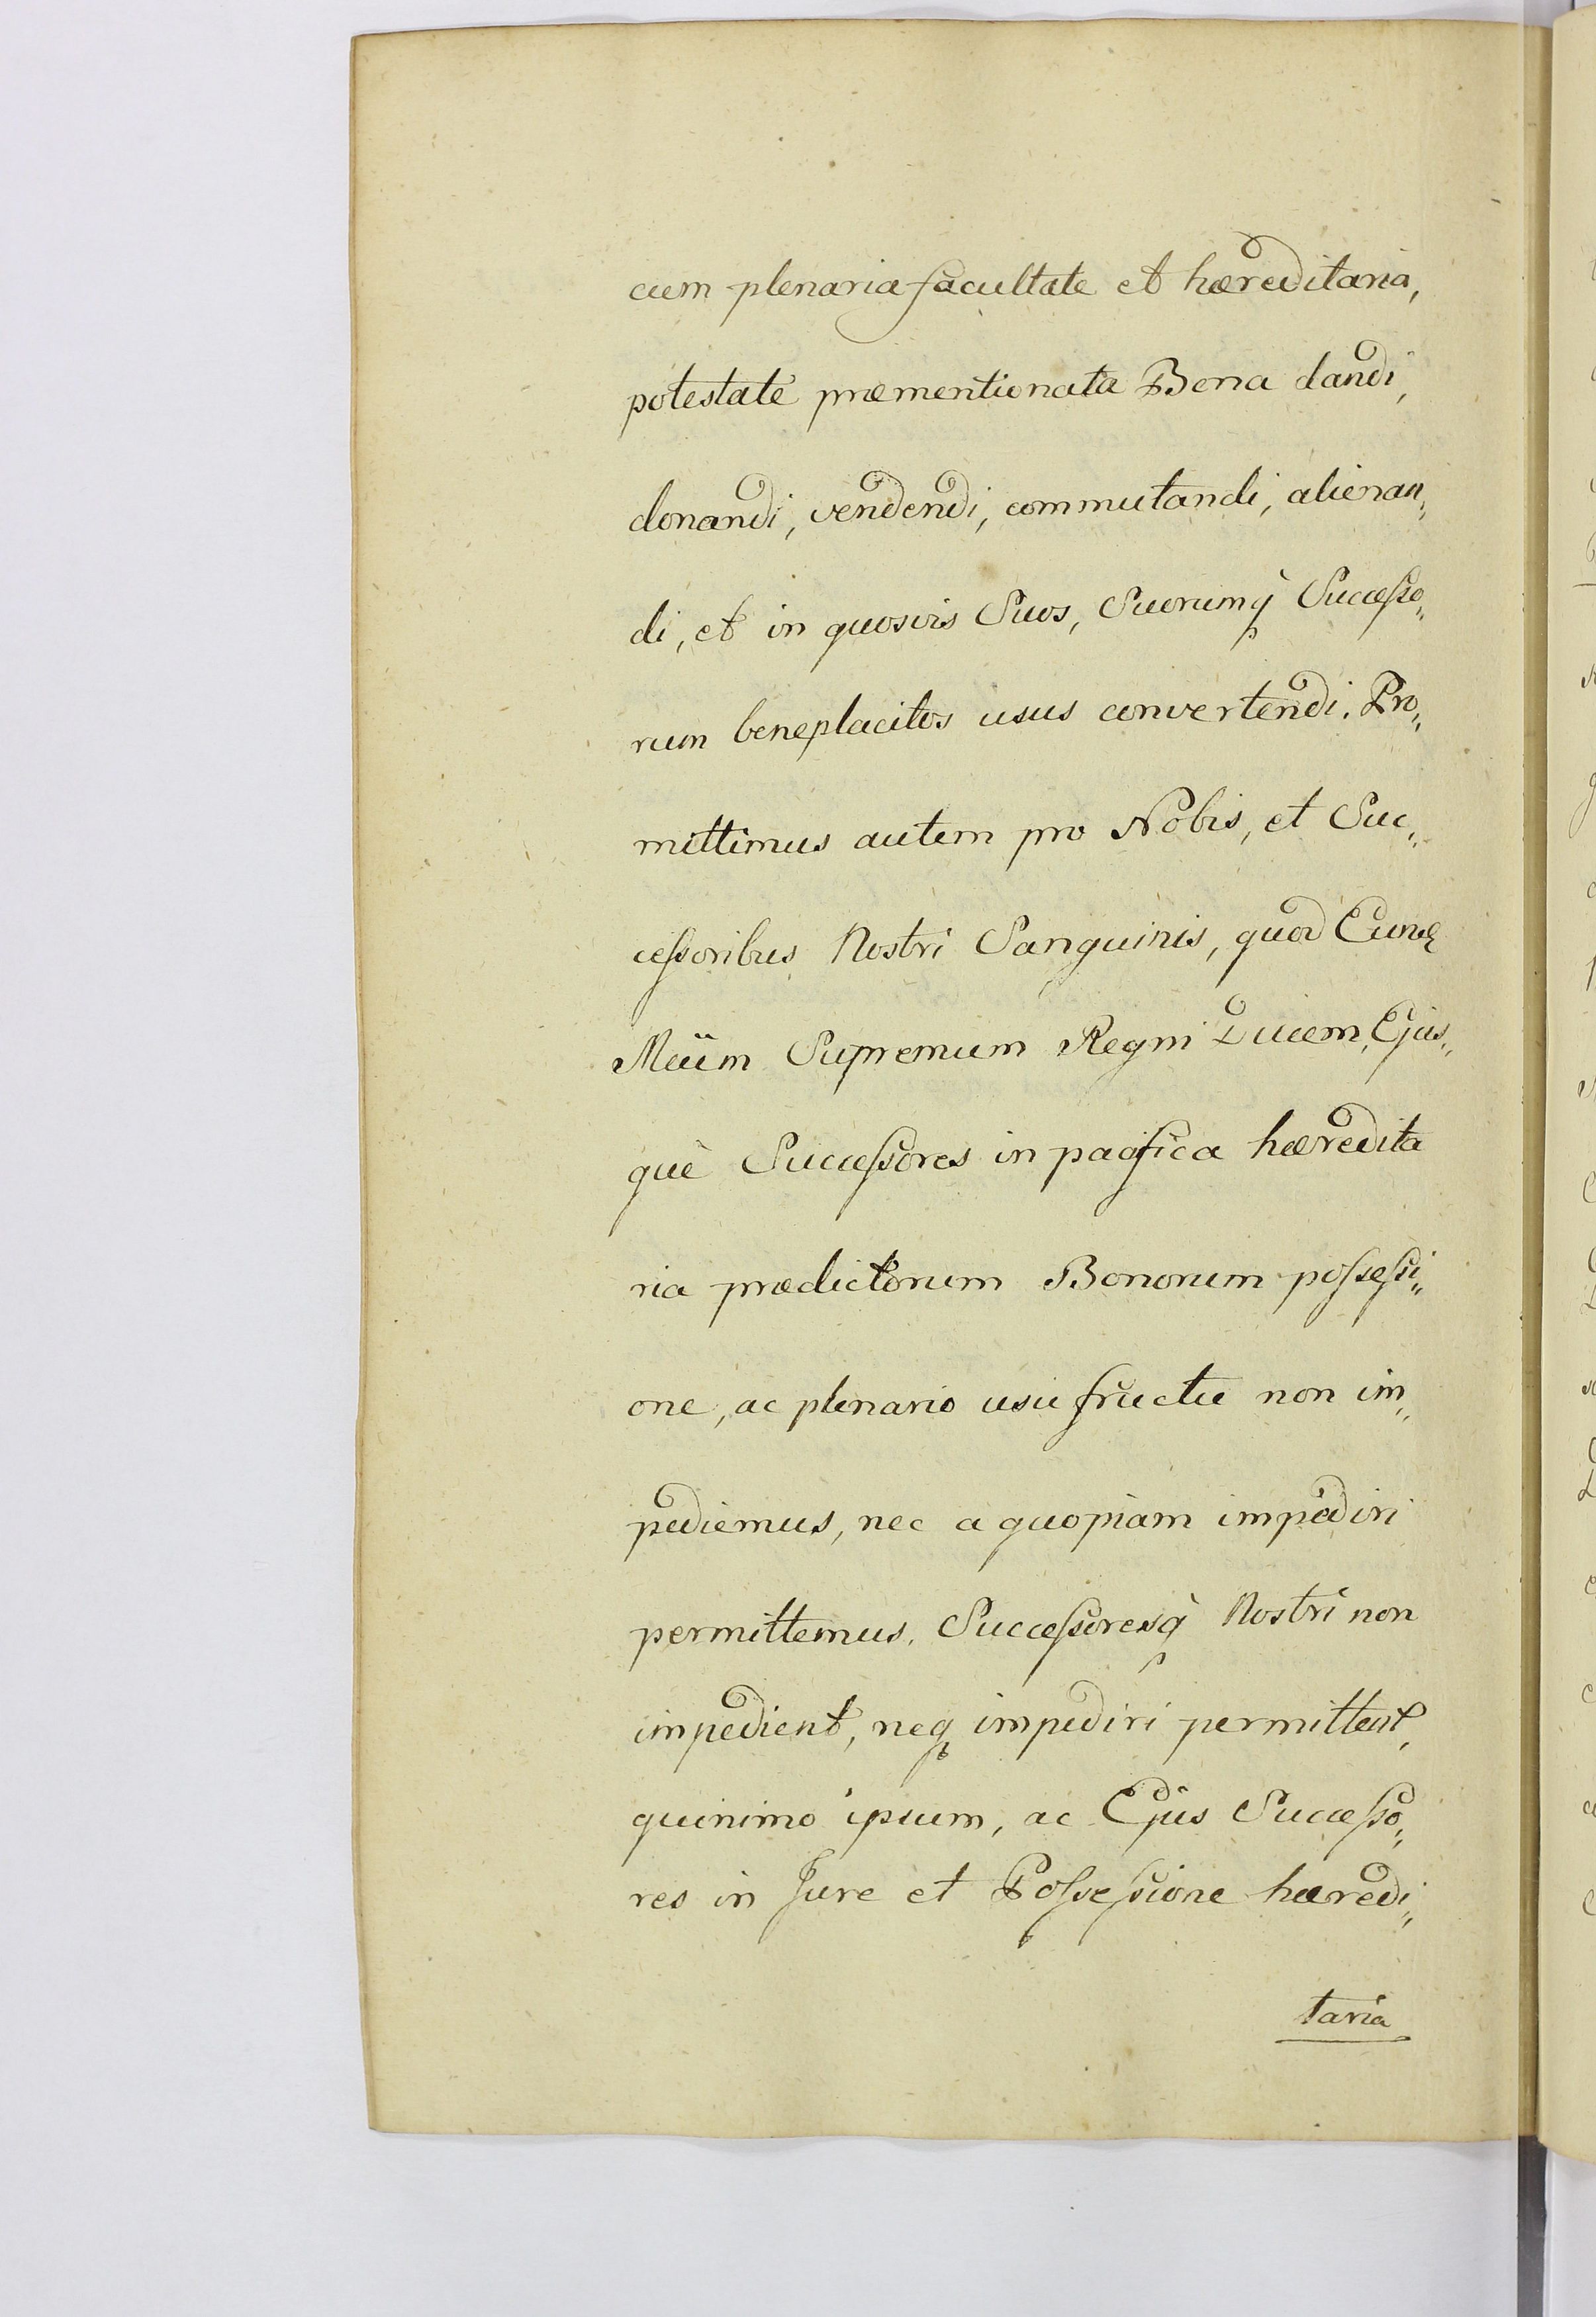 cum plenaria facultate et hæreditaria,
potestate præmentionata Bona dandi,
donandi, vendendi, commutandi, alienan„
di, et in quosvis Suos, Suorumq̀ Succeſso„
rum beneplacitos usus convertendi. Pro„
mittimus autem pro Nobis, et Suc„
ceſsoribus Nostri Sanguinis, quod Eund
Maüm Supremum Regni Ducem, Ejus„
què Succeſsores in pacifica hæredita
ria prædictorum Bonorum poſseſsi„
one, ac plenario usufructu non im„
pediemus, nec a quopiam impediri
permittemus. Succeſsoresq̀ Nostri non
impedient, neq impediri permittent,
quinimo ipsum, ac Ejus Succeſso„
res in Jure et Poſseſsione hæredi„
taria